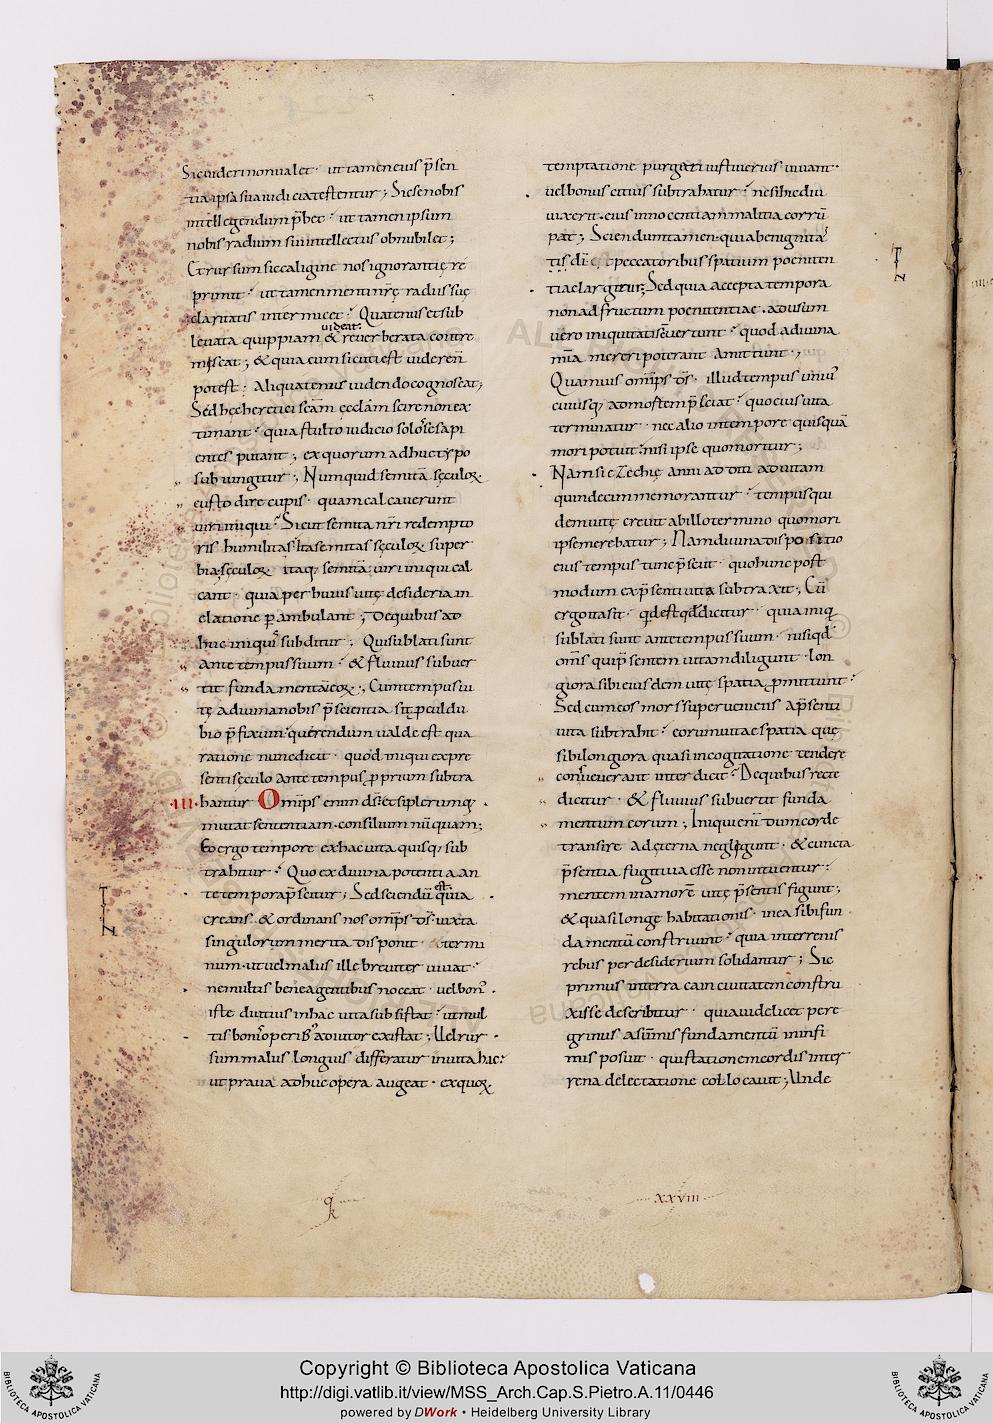 Sic uideri non ualet · ut tamen eius p̄sen
tia ipsa sua iudicia testentur; Sic se nobis
intellegendum p̄bet · ut tamen ipsum
nobis radium sui intellectus obnubilet;
Et rursum sic caligine nos ignorantię re
primit · ut tamen menti nr̄ę radius suę
claritatis intermicet · Quatenus et sub
uideat
leuata quippiam & reuerberata contre
miscat; & quia eum sicuti est uidere n̄
potest · Aliquatenus uidendo cognoscat;
Sed hęc heretici sc̄am ęccl̄am scire non ex
timant · quia stulto iudicio solos se sapi
entes putant; ex quorum adhuc typo
subiungitur; Numquid semitā sęculoꝝ
custodire cupis · quam calcauerunt
uiri iniqui · Sicut semita nr̄i redempto
ris humilitas Ita semitas sęculoꝝ super
bia; sęculoꝝ itaq; semitā uiri iniqui cal
cant · quia per huius uitę desideria in
elatione ꝑambulant; De quibus ad
huc iniquis subditur; Qui sublati sunt
Ante tempus suum · & fluuius subuer
tit fundamentū eoꝝ; Cum tempus ui
tę a diuina nobis p̄scientia sit ꝓcul du
bio p̄fixum · querendum ualde est qua
ratione nunc dicit · quod iniqui ex pre
senti sęculo ante tempus ꝓprium subtra
·III· hantur Omīps enim ds̄ · et si plerumq;
mutat sententiam · consilium nūquam;
Eo ergo tempore ex hac uita quisq; sub
trahitur · Quo ex diuina potentia an
est
te tempora p̄scitur; Sed sciendū quia
creans & ordinans nos omīps ds̄ iuxta
singulorum merita disponit · & termi
num · ut uel malus ille breuiter uiuat ·
ne multis bene agentibus noceat · uel bonꝰ
iste diutius in hac uita subsistat · ut mul
tis boni operibꝰ adiutor existat; Uel rur
sum malus longius differatur in uita hac
ut praua adhuc opera augeat · ex quoꝝ
temptatione purgati iusti uerius uiuant ·
uel bonus citius subtrahatur · ne si hic diu
uixerit · eius innocentiam malitia corrū
pat; Sciendum tamen · quia benignita
tis dī ē, peccatoribus spatium poeniten
tiae largitur; Sed quia accepta tempora
non ad fructum poenitentiae · ad usum
uero iniquitatis uertunt · quod a diuina
mīa mereri poterant Amittunt;
Quamuis omīps ds̄ · illud tempus uniuꝰ
cuiusq; ad mortem p̄sciat · quo eius uita
terminatur · nec alio in tempore quisquā
mori potuit · nisi ipse quo moritur;
Nam si Ezechię anni additi ad uitam
quindecim memorantur · tempus qui
dem uitę creuit ab illo termino quo mori
ipse merebatur; Nam diuina dispositio
eius tempus tunc p̄sciuit · quo hunc post
modum ex p̄senti uita subtraxit; Cū
ergo ita sit · quid est qd dicitur · quia iniq
sublati sunt ante tempus suum · nisi qd
omīs qui p̄sentem uitam diligunt · lon
giora sibi eiusdem uitę spatia ꝓmittunt ·
Sed cum eos mors superueniens a p̄senti
uita subtrahit · eorum uitae spatia quę
sibi longiora quasi in cogitatione tendere
consueuerant intercidit · De quibus recte
dicitur · & fluuius subuertit funda
mentum eorum; Iniqui enī dum corde
transire Ad ęterna neglegunt · & cuncta
p̄sentia fugitiua esse non intuentur ·
mentem in amorē uitę p̄sentis figunt;
& quasi longę habitationis · in ea sibi fun
damentū construunt · quia in terrenis
rebus per desiderium solidantur; Sic
primus in terra cain ciuitatem constru
xisse describitur · qui a uidelicet pere
grinus asūmus fundamentū in infi
mis posuit · qui stationem cordis in ter
rena delectatione collocauit; Unde
XXVIII
Copyright © Biblioteca Apostolica Vaticana
http://digi.vatlib.it/view/MSS_Arch.Cap.S.Pietro.A.11/0446
powered by DWork • Heidelberg University Library
BIBLIOTECA APOSTOLICA VATICANA
BIBLIOTECA APOSTOLICA VATICANA